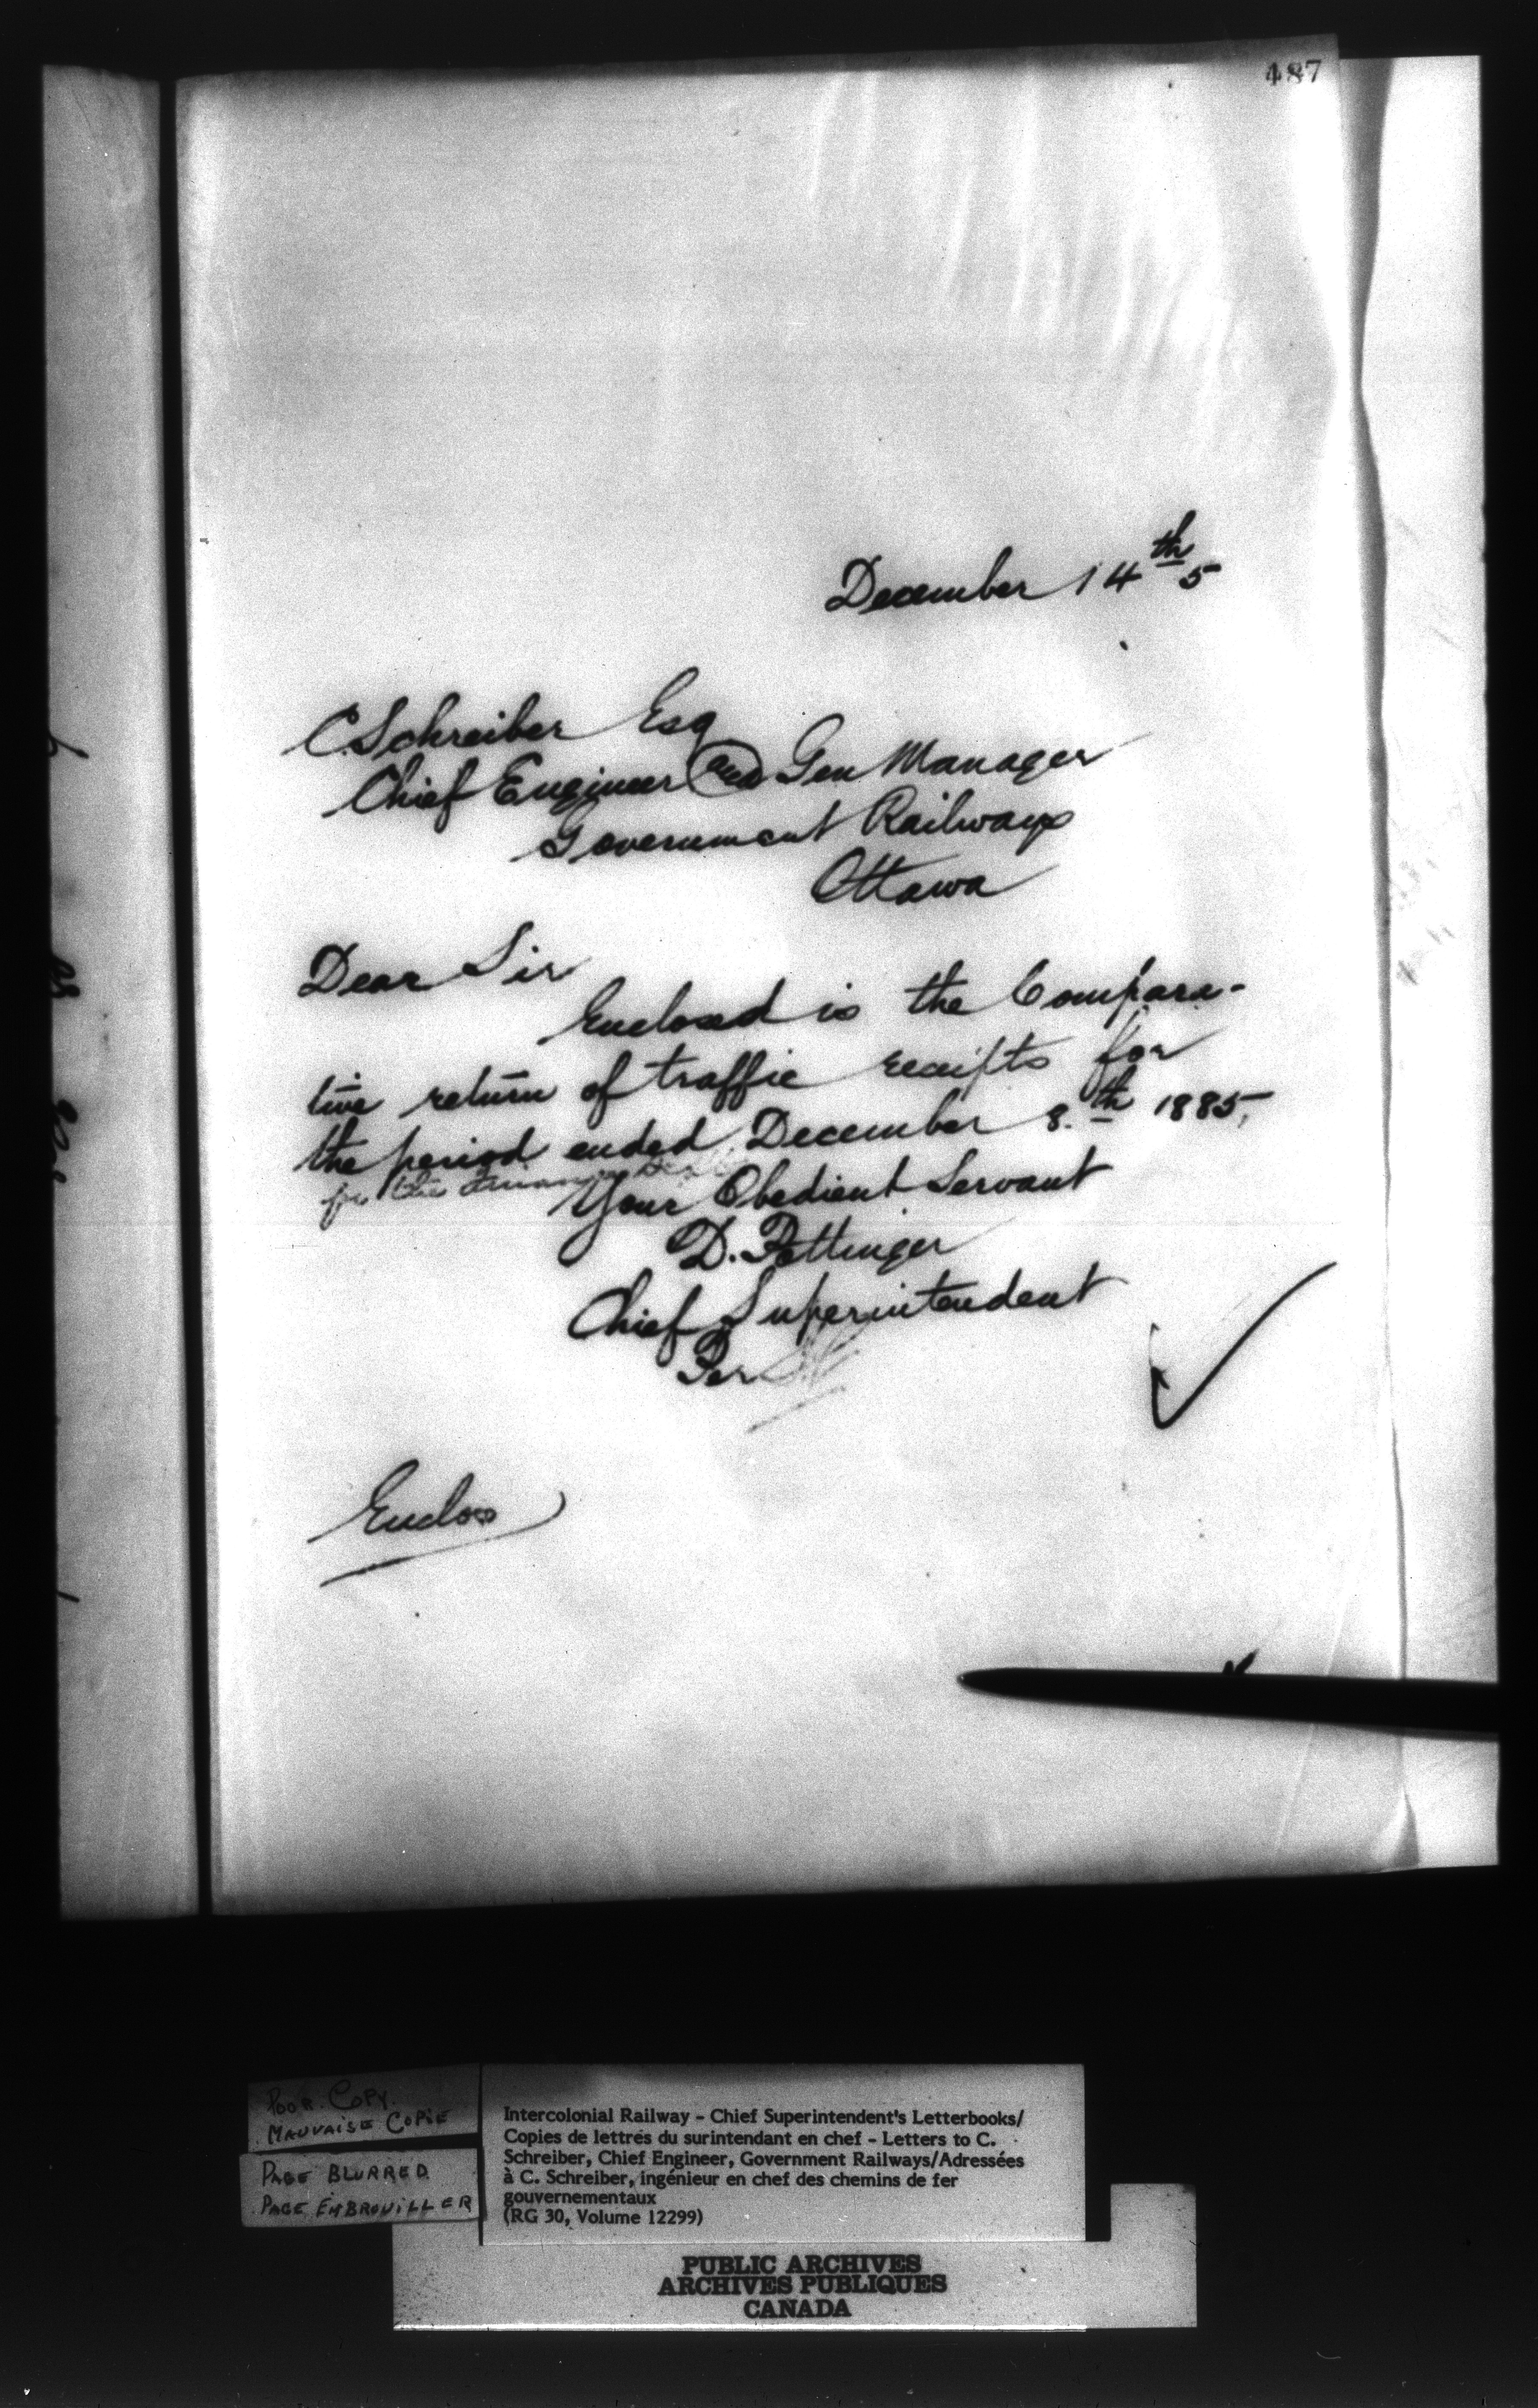 487
December 14th 5
C. Schreiber Esq
Chief Engineer and Gen Manager
Government Railways
Ottawa
Dear Sir
Enclosed is the Compara-
tive return of traffic receipts for
the period ended December 8.th 1885,
for the
Your Obedient Servant
D. Pottinger
Chief Superintendent
Per
Enclos
POOR COPY.
MAUVAISE COPIE
PAGE BLURRED
PAGE EMBROUILLER
Intercolonial Railway - Chief Superintendent's Letterbooks/
Copies de lettres du surintendant en chef - Letters to C.
Schreiber, Chief Engineer, Government Railways/Adressées
à C. Schreiber, ingénieur en chef des chemins de fer
gouvernementaux
(RG 30, Volume 12299)
PUBLIC ARCHIVES
ARCHIVES PUBLIQUES
CANADA